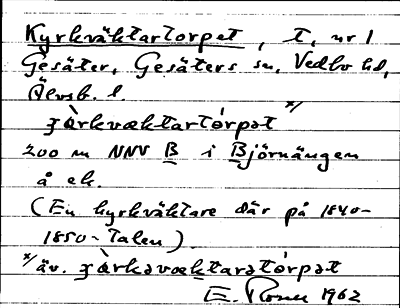 Kyrkväktartorpet, T, nr 1
Gesäter, Gesäters sn, Vedbo hd,
Älvsb. l.
ʒàrkvæktartórpət x/
200 m NNV B i Björnängen
å ek.
(En kyrkväktare där på 1840-
1850-talen).
x/ äv. ʒàrkəvæktaratórpət
E. 1962